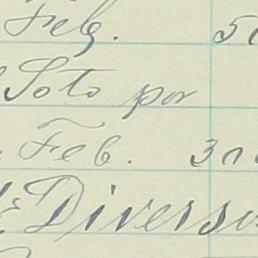 Feb. 50
Soto por
Feb. 300
Diversos